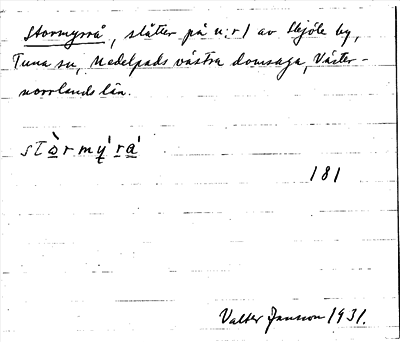 Stormyrrå, slåtter på n:r 1 av Skjöle by,
Tuna sn, Medelpads västra domsaga, Väster-
norrlands län.
stòrmýrá
181
Valter Jansson 1931.